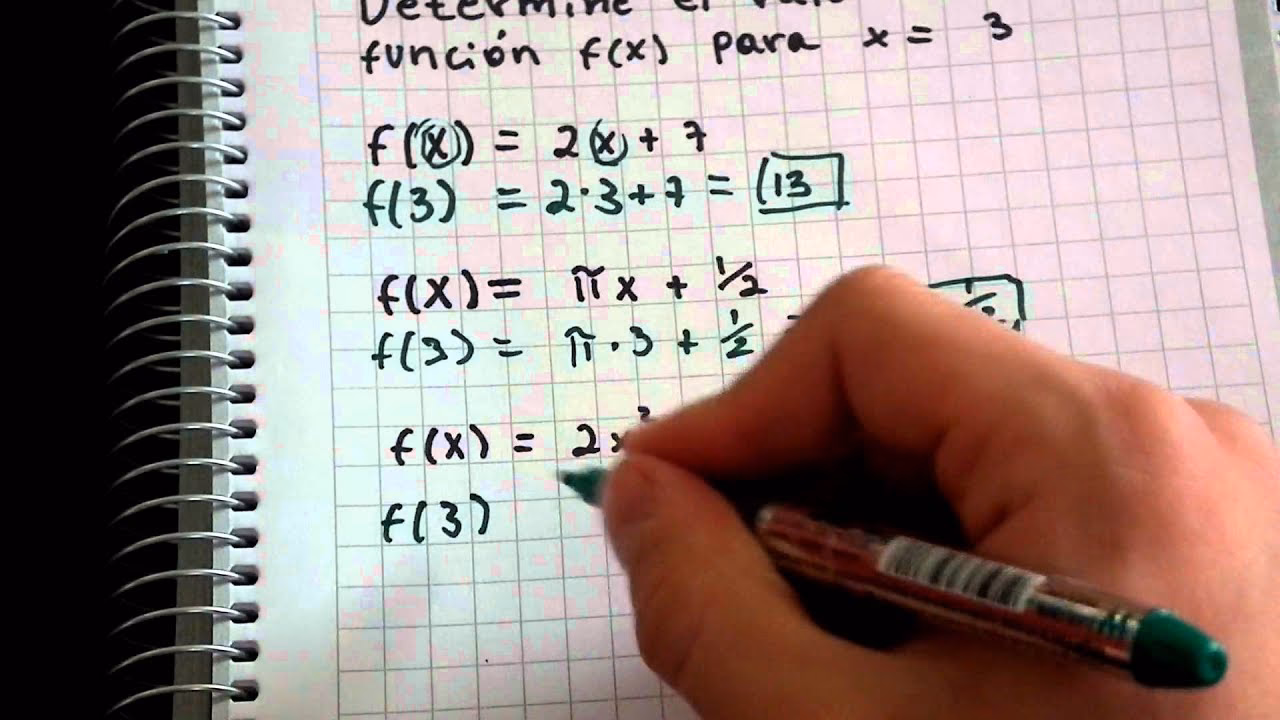 Determine el
función f(x) para x = 3
f(x) = 2x + 7
f(3) = 2·3+7 = 13
f(x) = πx + 1/2
f(3) = π·3 + 1/2
f(x) = 2x
f(3)